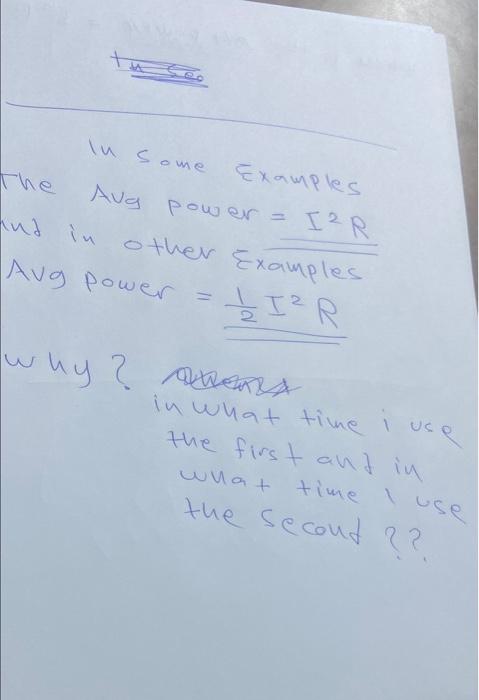 In some Examples
The Avg power = I²R
and in other Examples
Avg power = 1/2 I² R
why?
in what time i use
the first and in
what time i use
the second ??